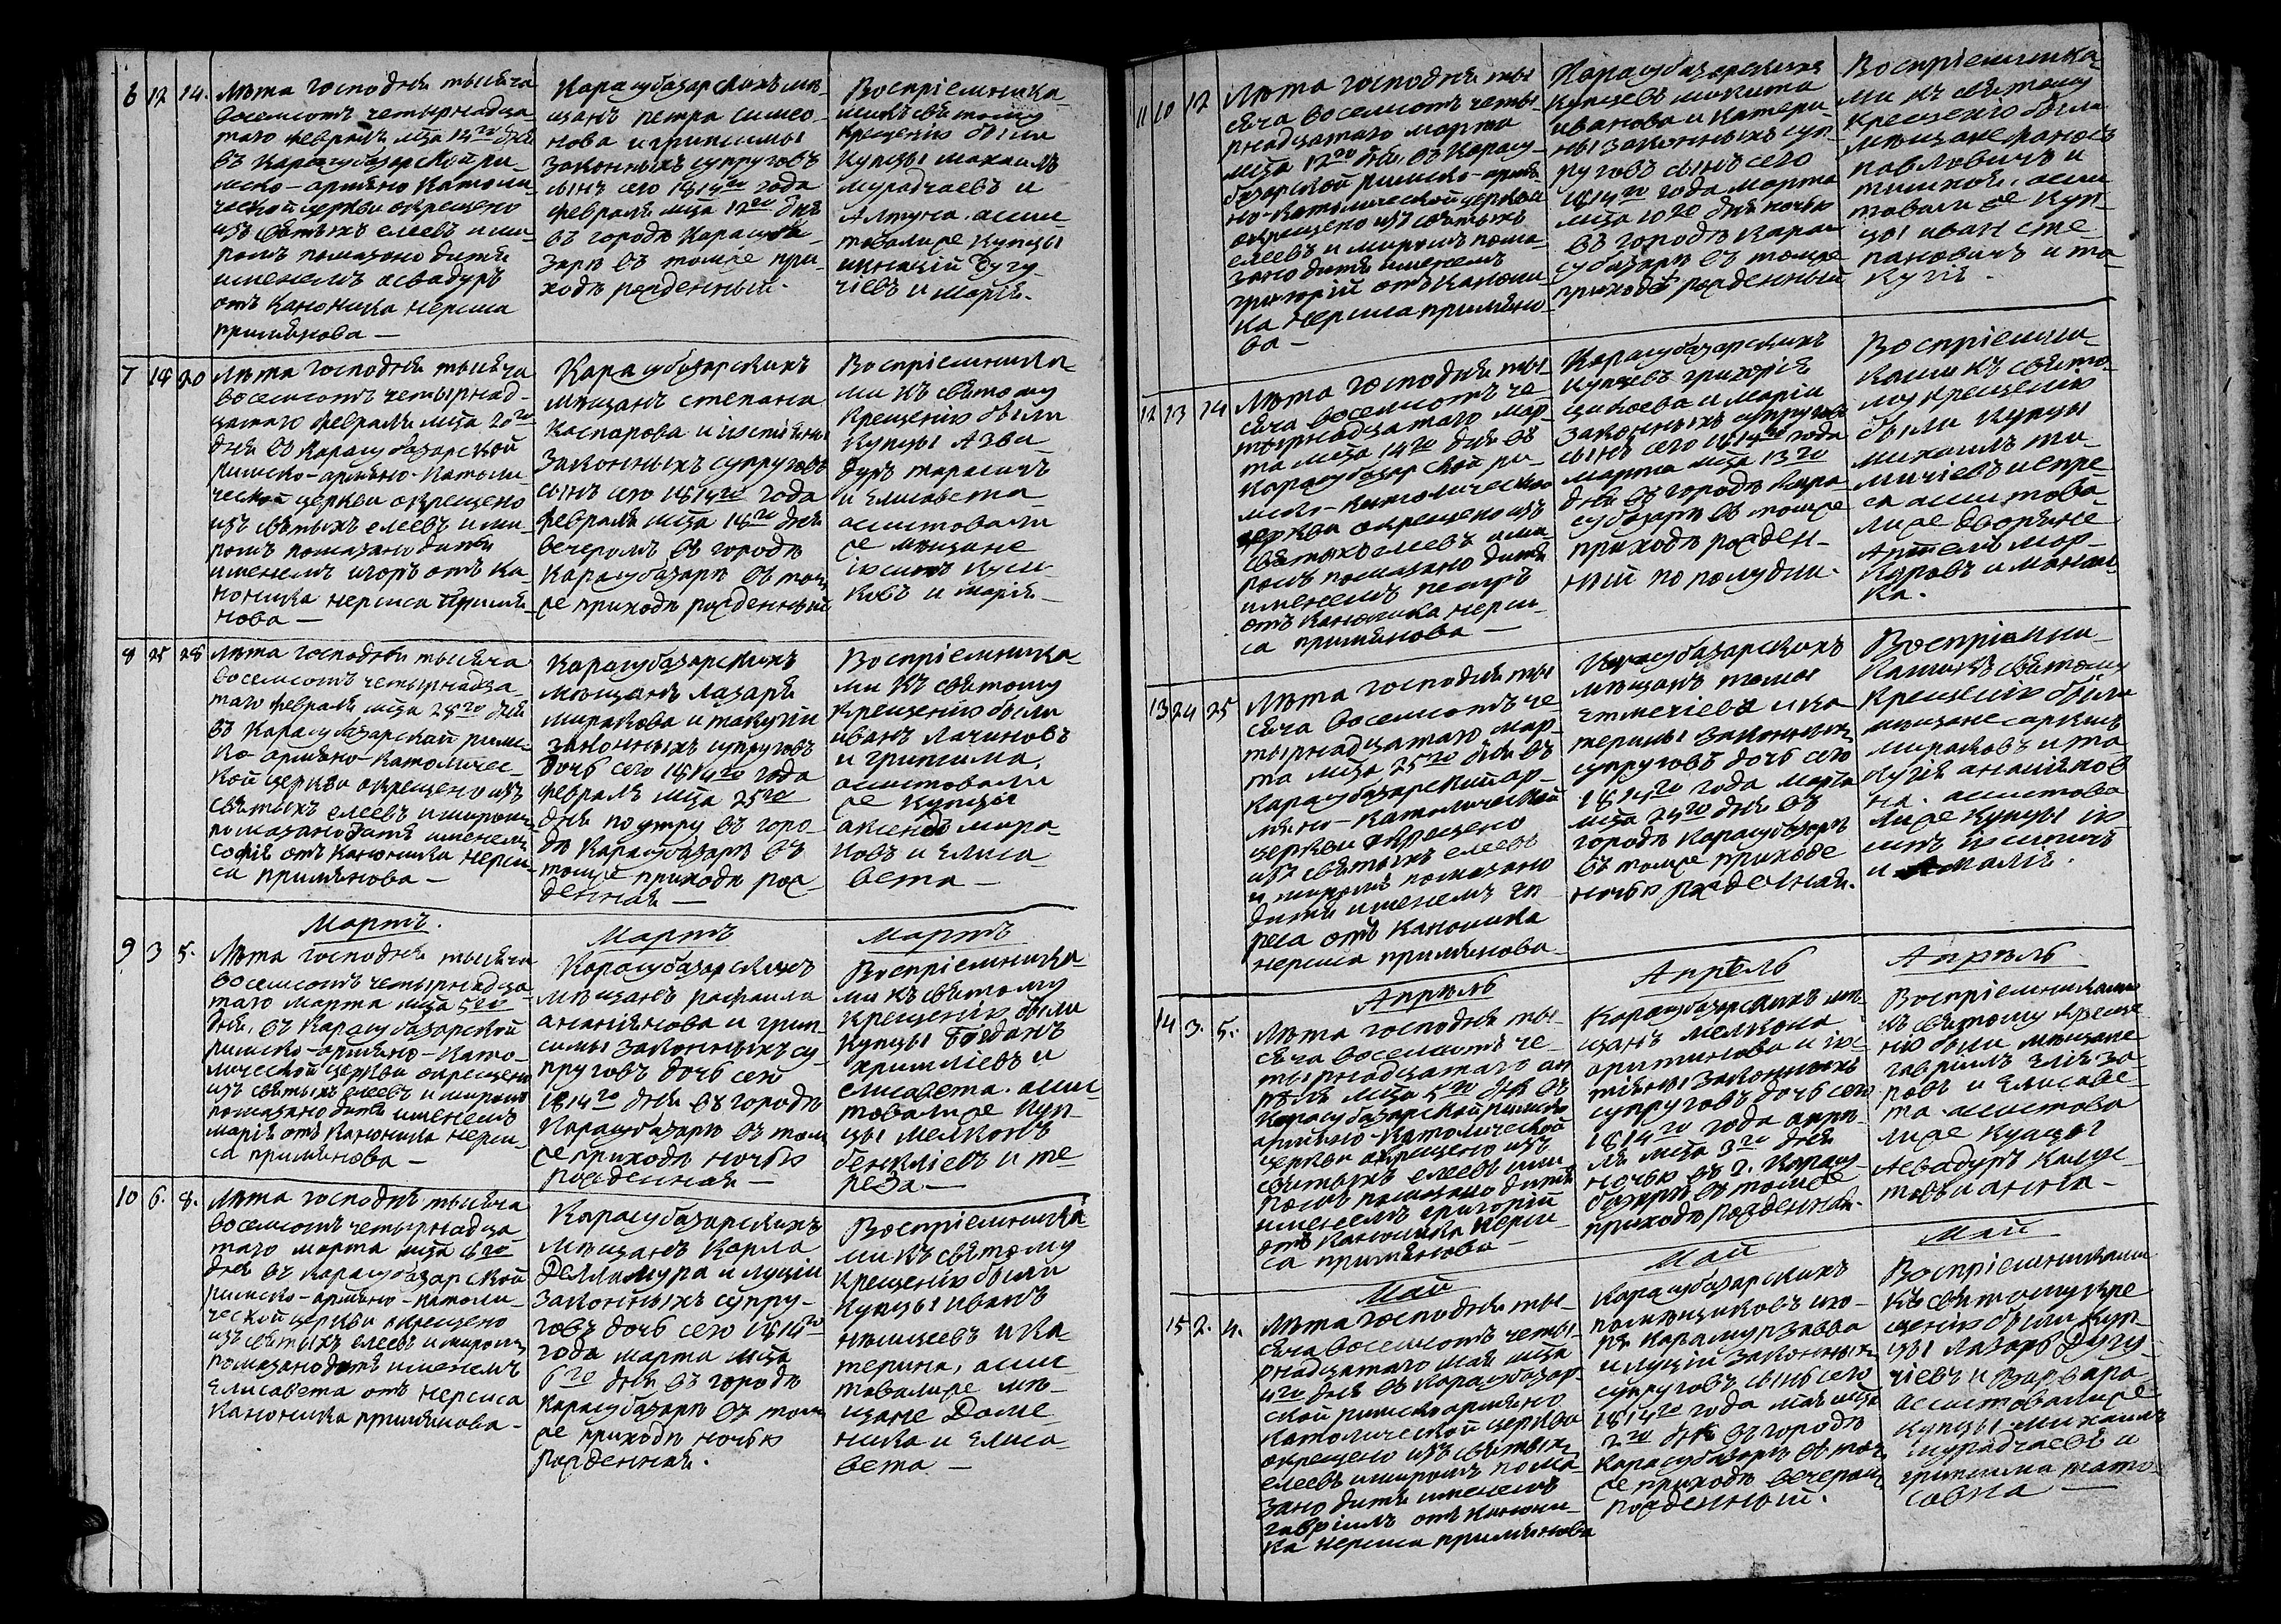 6 12 14.
Лѣта господня тысяча
восемсотъ четырнадца-
таго февраля мѣца 14го дня
въ Карасубазарской ри-
мско-армяно Католи-
ческой церкви окрещено
изъ святыхъ елеевъ и ми-
ромъ помазано дитя
именемъ асвадуръ
отъ Каноника нерсиса
примянова —
Карасубазарскихъ мѣ-
щанъ петра симео-
нова и грипсимы
законныхъ супруговъ
сынъ сего 1814го года
февраля мѣца 12го дня
въ городѣ Карасуба-
зарѣ въ томже при-
ходѣ рожденный.
Воспріемника-
ми къ святому
крещенію были
Купцы михаилъ
мурадчаевъ и
Алтуна. асис-
товалиже Купцы
игнацій Чугу-
чіевъ и марія.
7 18 20
Лѣта господня тысяча
восемсотъ четырнад-
цатаго февраля мѣца 20го
дня въ Карасубазарской
римско-армяно-Католи-
ческой церкви окрещено
изъ святыхъ елеевъ и ми-
ромъ помазано дитя
именемъ игоръ отъ Ка-
ноника нерсиса Примя-
нова —
Карасубазарскихъ
мѣщанъ степана
каспарова и устіяны
законныхъ супруговъ
сынъ сего 1814го года
февраля мѣца 18го дня
вечеромъ въ городѣ
Карасубазарѣ въ том-
же приходѣ рожденный
Воспріемника-
ми къ святому
крещенію были
Купцы Азва-
дуръ тарасичъ
и Елисавета
асистовали
же мѣщане
и марія —
8 25 28
Лѣта господня тысяча
восемсотъ четырнадца-
таго февраля мѣца 28го дня
въ Карасубазарской римс-
ко-армяно-Католичес-
кой церкви окрещено изъ
святыхъ елеевъ и миромъ
помазано дитя именемъ
софія отъ Каноника нерси-
са примянова —
Карасубазарскихъ
мѣщанъ лазаря
миракова и такугіи
законныхъ супруговъ
дочь сего 1814го года
февраля мѣца 25го
дня поутру въ горо-
дѣ Карасубазарѣ въ
томже приходѣ рож-
денная —
Воспріемника-
ми къ святому
Крещенію были
иванъ лачиновъ
и грипсима,
асистовали
же купцы
аксенд мира-
ковъ и Елиса
вета —
9 3 5.
Мартъ.
Лѣта господня тысяча
восемсотъ четырнадца-
таго марта мѣца 5го
дня, въ Карасубазарской
римско-армяно-Като-
лической церкви окрещено
изъ святыхъ елеевъ и миромъ
помазано дитя именемъ
марія отъ Каноника нерси-
са примянова —
Мартъ
Карасубазарскихъ
мѣщанъ рафаила
ананянова и грип-
симы законныхъ су-
пруговъ дочь сего
1814го дня въ городѣ
Карасубазарѣ въ том
же приходѣ ночью
рожденная —
Мартъ
Воспріемника-
ми къ святому
Крещенію были
Купцы Богданъ
и
елисавета. асис-
товалиже Куп-
цы мелконъ
бенкліевъ и те-
реза. —
10 6. 8.
Лѣта господнѣ тысяча
восемсотъ четырнадца-
таго марта мѣца 8го
дня въ Карасубазарской
римско-армяно-католи-
ческой церкви окрещено
изъ святыхъ елеевъ и миромъ
помазано дитя именемъ
Елисавета отъ нерсиса
Каноника примянова —
Карасубазарскихъ
мѣщанъ Карла
и луціи
законныхъ супру-
говъ дочь сего 1814го
года марта мѣца
6го дня въ городѣ
карасубазарѣ въ том
же приходѣ ночью
рожденная.
Воспріемника-
ми къ святому
крещенію были
Купцы иванъ
и ка-
терина, асис-
товалиже мѣ-
щане Доме-
ника и Елиса
вета —
11 10 12
Лѣта господня ты-
сяча восемсотъ четы-
рнадцатаго марта
мѣца 12го дня, въ Карасу-
базарской римско-армя-
но-католической церкви
окрещено изъ святыхъ
елеевъ и миромъ пома-
зано дитя именемъ
григорій отъ Канони-
ка нерсиса примяно-
ва —
Карасубазарскихъ
купцевъ никита
иванова и катери-
ны законныхъ суп-
руговъ сынъ сего
1814го года марта
мѣца 10го дня ночью
въ городѣ кара-
субазарѣ въ томже
приходѣ рожденный
Воспріемника-
ми къ святому
крещенію были
мѣщане
павловичъ и
асис-
товали же Куп-
цы иван сте-
пановичъ и та-
кугія.
12 13 14
Лѣта господня ты-
сяча восемсотъ че-
тырнадцатаго мар-
та мѣца 14го дня въ
Карасубазарской ри-
мско-католической
церкви окрещено изъ
святыхъ елеевъ и ми-
ромъ помазано дитя
именемъ петръ
отъ Каноника нерси-
са примянова —
Карасубазарскихъ
купцевъ григорія
и маріи
законныхъ супруговъ
сынъ сего 1814го года
марта мѣца 13го
дня въ городѣ кара-
субазарѣ въ томже
приходѣ рожден-
ный пополудни.
Воспріемни-
ками къ свято-
му крещенію
были купцы
михаилъ
и
асистова
лиже дворяне
и
13 24 25
Лѣта господня ты-
сяча восемсотъ че-
тырнадцатаго мар-
та мѣца 25го дня въ
Карасубазарской ар-
мяно-католической
церкви окрещено
изъ святыхъ елеевъ
и миромъ помазано
дитя именемъ
отъ Каноника
нерсиса примянова
Карасубазарскихъ
мѣщанъ томы
и ка-
терины законныхъ
супруговъ дочь сего
1814го года марта
мѣца 24го дня въ
городѣ Карасубазарѣ
въ томже приходе
ночью рожденная.
Воспріемни-
ками къ святому
крещенію были
мѣщане саркисъ
мираковъ и та-
кугія
асистова
лиже Купцы
и
14 3. 5.
Апрѣль
Лѣта господня ты-
сяча восемсотъ че-
тырнадцатаго ап-
рѣля мѣца 5го дня въ
Карасубазарской римско
армяно-католической
церкви окрещено изъ
святыхъ елеевъ и ми-
ромъ помазано дитя
именемъ григорій
отъ каноника нерси-
са примянова —
Апрѣль
Карасубазарскихъ мѣ-
щанъ мелкона
аритинова и юс-
тіяны законныхъ
супруговъ дочь сего
1814го года апрѣ-
ля мѣца 3го дня
ночью въ г. Карасу-
базарѣ въ томже
приходѣ рожденная.
Апрѣль
Воспріемниками
къ святому креще
нію были мѣщане
гавріилъ
и Елисаве-
та. асистова
лиже Купцы
Асвадуръ
и анна —
15 2. 4.
Май
Лѣта господня ты-
сяча восемсотъ четы-
рнадцатаго мая мѣца
4го дня въ Карасубазар-
ской римско армяно
католической церкви
окрещено изъ святыхъ
елеевъ и миромъ пома-
зано дитя именемъ
гавріилъ отъ Канони-
ка нерсиса примянова
Май
Карасубазарскихъ
и луціи законныхъ
супруговъ сынъ сего
1814го года мая мѣца
2го дня въ городѣ
Карасубазарѣ въ том-
же приходѣ вечеромъ
рожденный.
Май
Воспріемниками
къ святому кре
щенію были Куп-
цы лазарь Дугу-
чіевъ и Варвара
асистовалиже
купцы михаилъ
мурадчаевъ и
грипсима